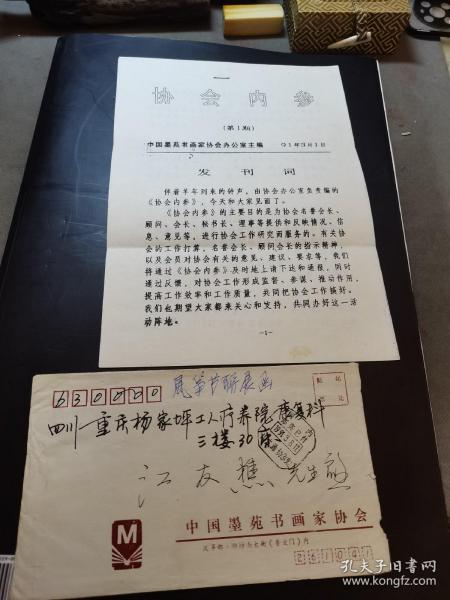 协会内参
（第1期）
中国墨苑书画家协会办公室主编 91年3月1日
发刊词
伴着羊年到来的钟声，由协会办公室负责编的
《协会内参》，今天和大家见面了。
《协会内参》的主要目的是为协会名誉会长、
顾问、会长、秘书长、理事等提供和反映情况、信
息、意见等，进行协会工作研究而服务的。有关协
会的工作打算，名誉会长、顾问会长的指示精神，
以及会员对协会有关的意见、建议、要求等，我们
将通过《协会内参》及时地上请下达和通报，同时
通过反馈，对协会工作形成监督、参谋、推动作用，
提高工作效率和工作质量，共同把协会工作搞好。
我们也期望大家都来关心和支持，共同办好这一活
动阵地。
—1—
630000
四川—重庆杨家坪工人疗养院康复科
三楼30床
江友樵 先生
M
中国墨苑书画家协会
孔夫子旧书网